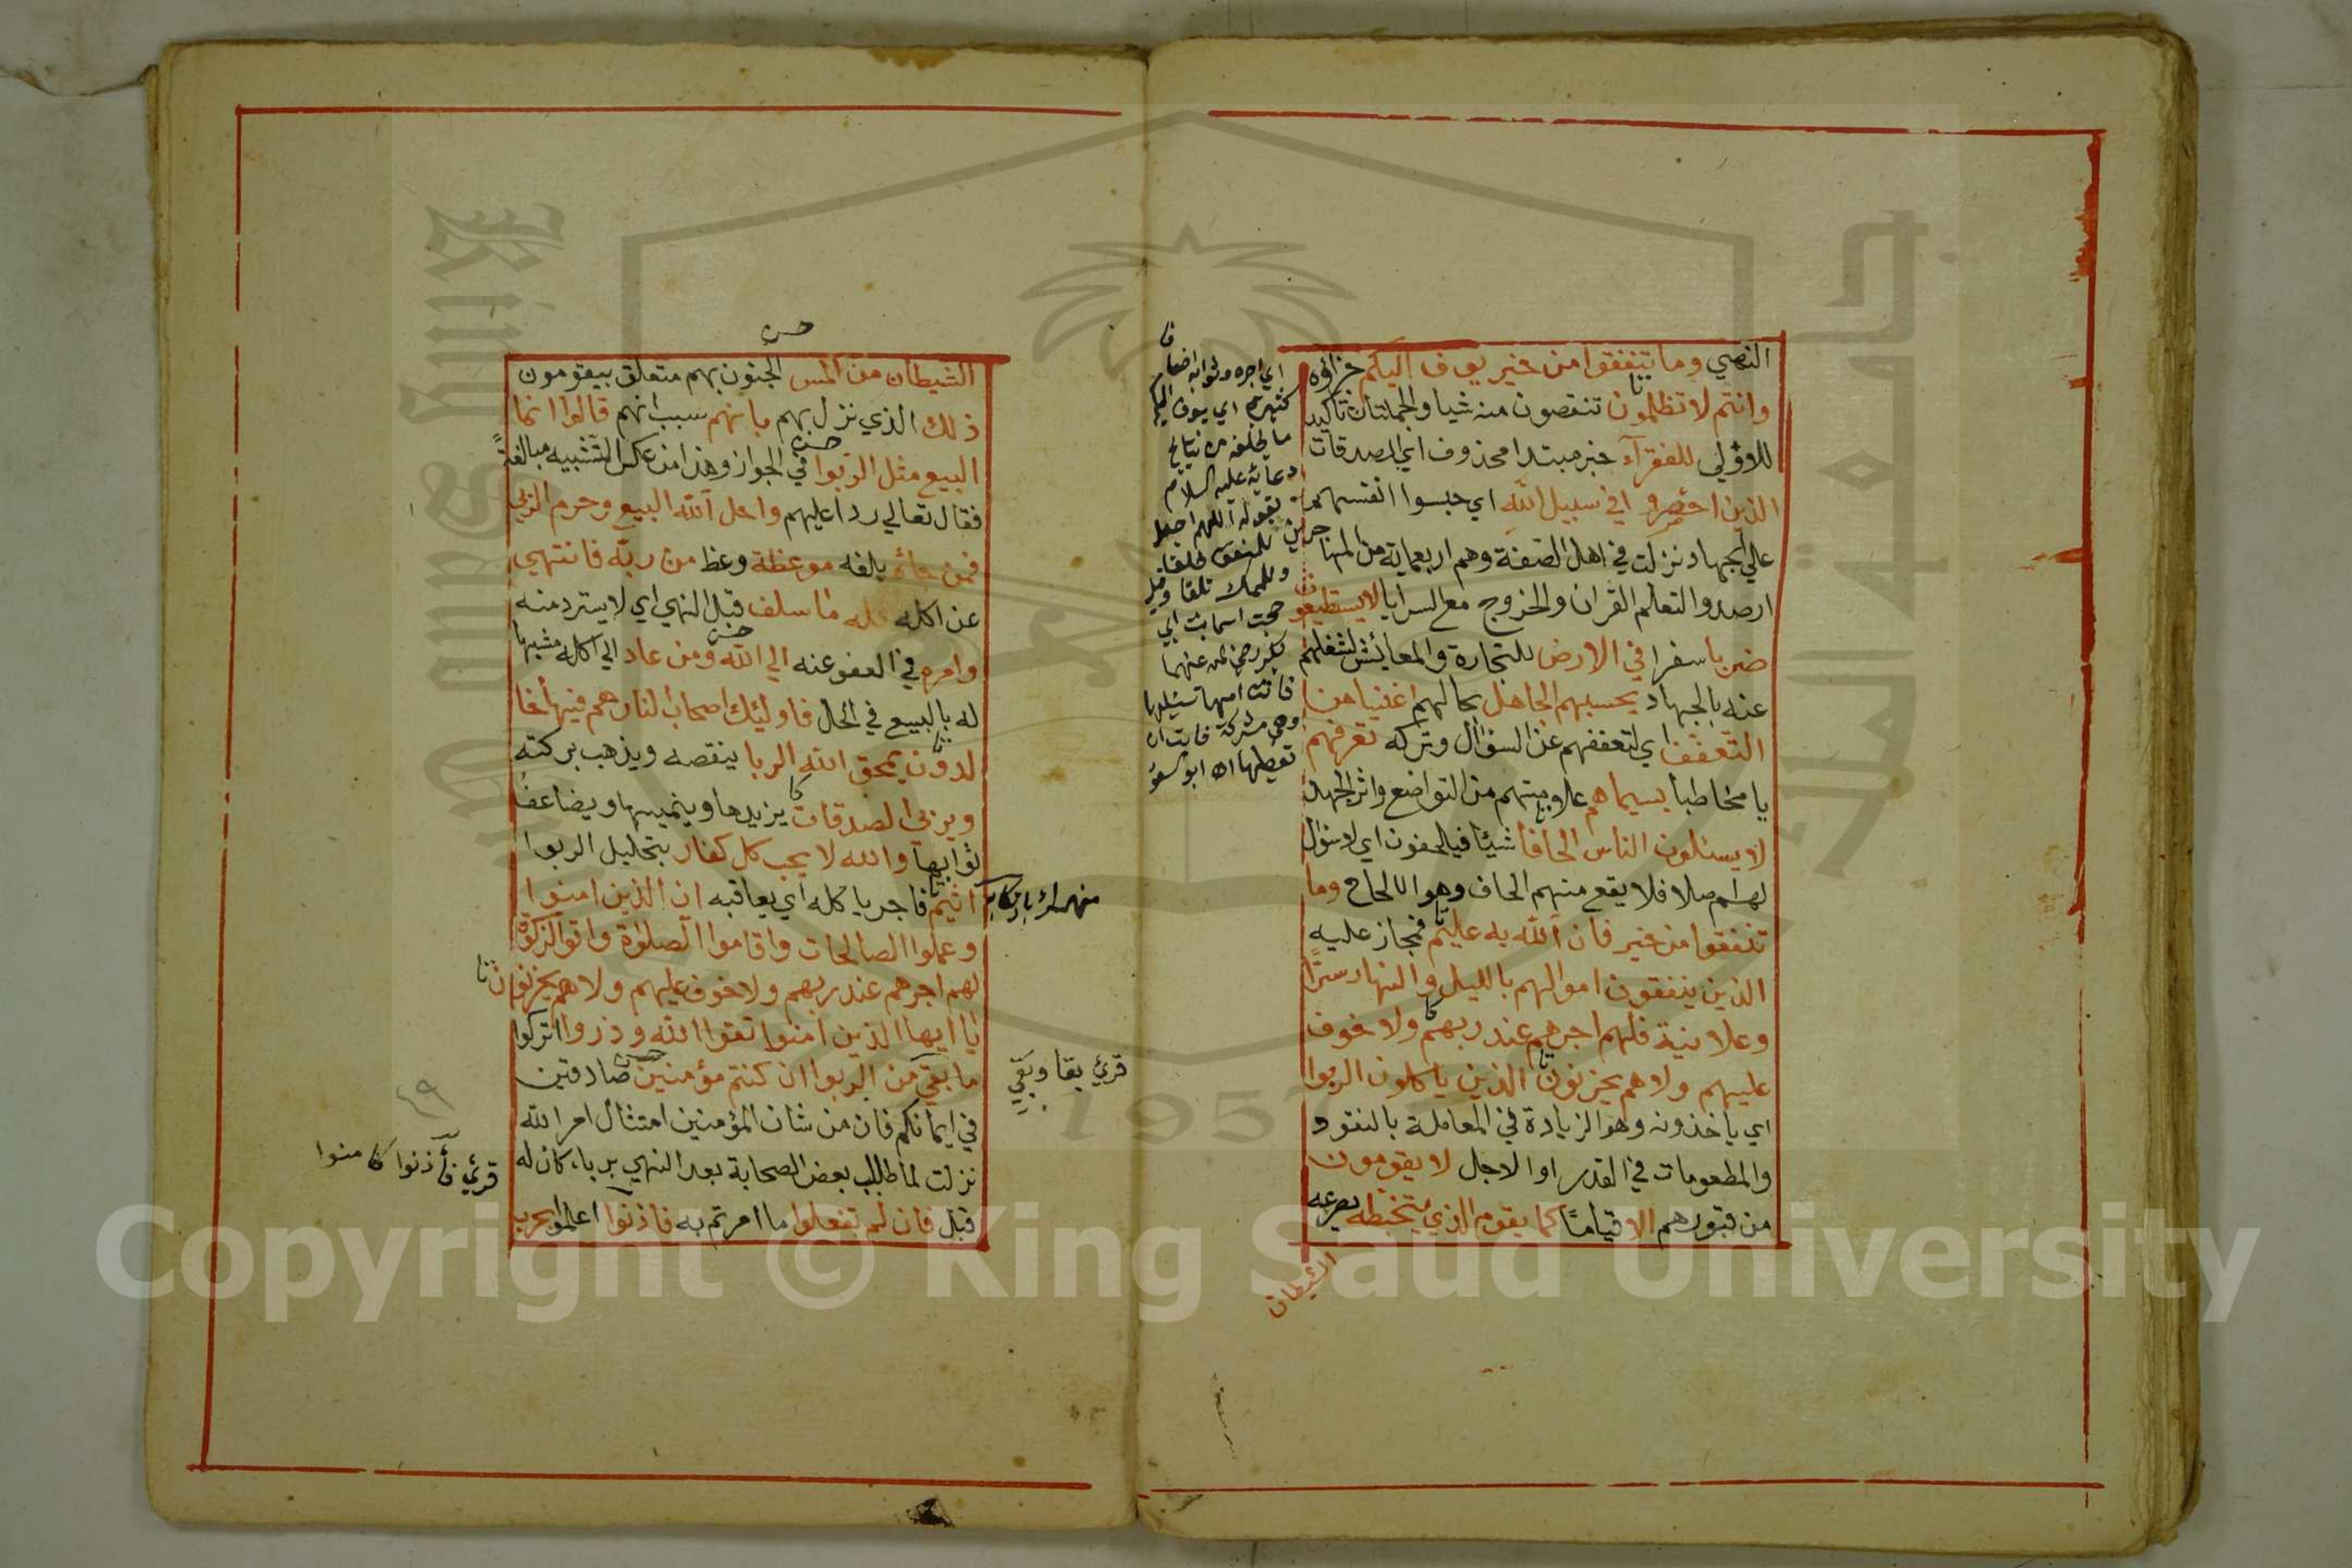 النهي وما تنفقوا من خير يوف اليكم جزاؤه
وانتم لا تظلمون تنقصون منه شيا والجملتان تاكيد
للاولي للفقرآء خبر مبتدا محذوف اي الصدقات
الذين احصروا في سبيل الله اي حبسوا انفسهم
علي الجهاد نزلت في اهل الصفة وهم اربعماية من المهاجرين
ارصدوا لتعلم القران والخروج مع السرايا لا يستطيعون
ضربا سفرا في الارض للتجارة والمعائش لشغلهم
عنه بالجهاد يحسبهم الجاهل بحالهم اغنيا من
التعفف اي لتعففهم عن السؤال وتركه تعرفهم
يا مخاطبا بسيماهم علامتهم من التواضع واثر الجهد
لا يسئلون الناس الحافا شيئا فيلحفون اي لا سؤال
لهم اصلا فلا يقع منهم الحاف وهو الالحاح وما
تنفقوا من خير فان الله به عليم فمجاز عليه
الذين ينفقون اموالهم بالليل والنهار سرا
وعلانية فلهم اجرهم عند ربهم ولا خوف
عليهم ولا هم يحزنون الذين ياكلون الربوا
اي ياخذونه وهو الزيادة في المعاملة بالنقود
والمطعومات في القدر او الاجل لا يقومون
من قبورهم الا قياما كما يقوم الذي يتخبطه يصرعه
الشيطان
اي اجره وثوابه اضعافا
كثيرة اي يوف اليكم
ما يخلفه من نتايج
دعائه عليه السلام
بقوله اللهم اجعل
للمنفق خلفا
وللممسك تلفا وقيل
حجت اسما بنت ابي
بكر رضي الله عنهما
فاتت امها تسئلها
وهي مشركة فابت ان
تعطيها اه ابو السعود
حسن
الشيطان من المس الجنون بهم متعلق بيقومون
ذلك الذي نزل بهم بانهم سبب انهم قالوا انما
البيع مثل الربوا في الجواز وهذا من عكس التشبيه مبالغة
فقال تعالي ردا عليهم واحل الله البيع وحرم الربي
فمن جائه بلغه موعظة وعظ من ربه فانتهي
عن اكله فله ما سلف قبل النهي اي لا يسترد منه
وامره في العفو عنه الي الله ومن عاد الي اكله مشبها
له بالبيع في الحل فاولئك اصحاب النار هم فيها خا
لدون يمحق الله الربا ينقصه ويذهب بركته
ويربي الصدقات يزيدها وينميها ويضاعف
ثوابها والله لا يحب كل كفار بتحليل الربوا
اثيم فاجر باكله اي يعاقبه ان الذين امنوا
وعملوا الصالحات واقاموا الصلوة واتوا الزكوة
لهم اجرهم عند ربهم ولا خوف عليهم ولا هم يحزنون
يا ايها الذين امنوا اتقوا الله وذروا اتركوا
ما بقي من الربوا ان كنتم مؤمنين صادقين
في ايمانكم فان من شان المؤمنين امتثال امر الله
نزلت لما طالب بعض الصحابة بعد النهي بربا كان له
قبل فان لم تفعلوا ما امرتم به فاذنوا اعلموا بحرب
قرئ بقا وبقي
٤٩
قرئ فأذنوا كامنوا
Copyright © King Saud University
King Saud University
جامعة الملك سعود
1957